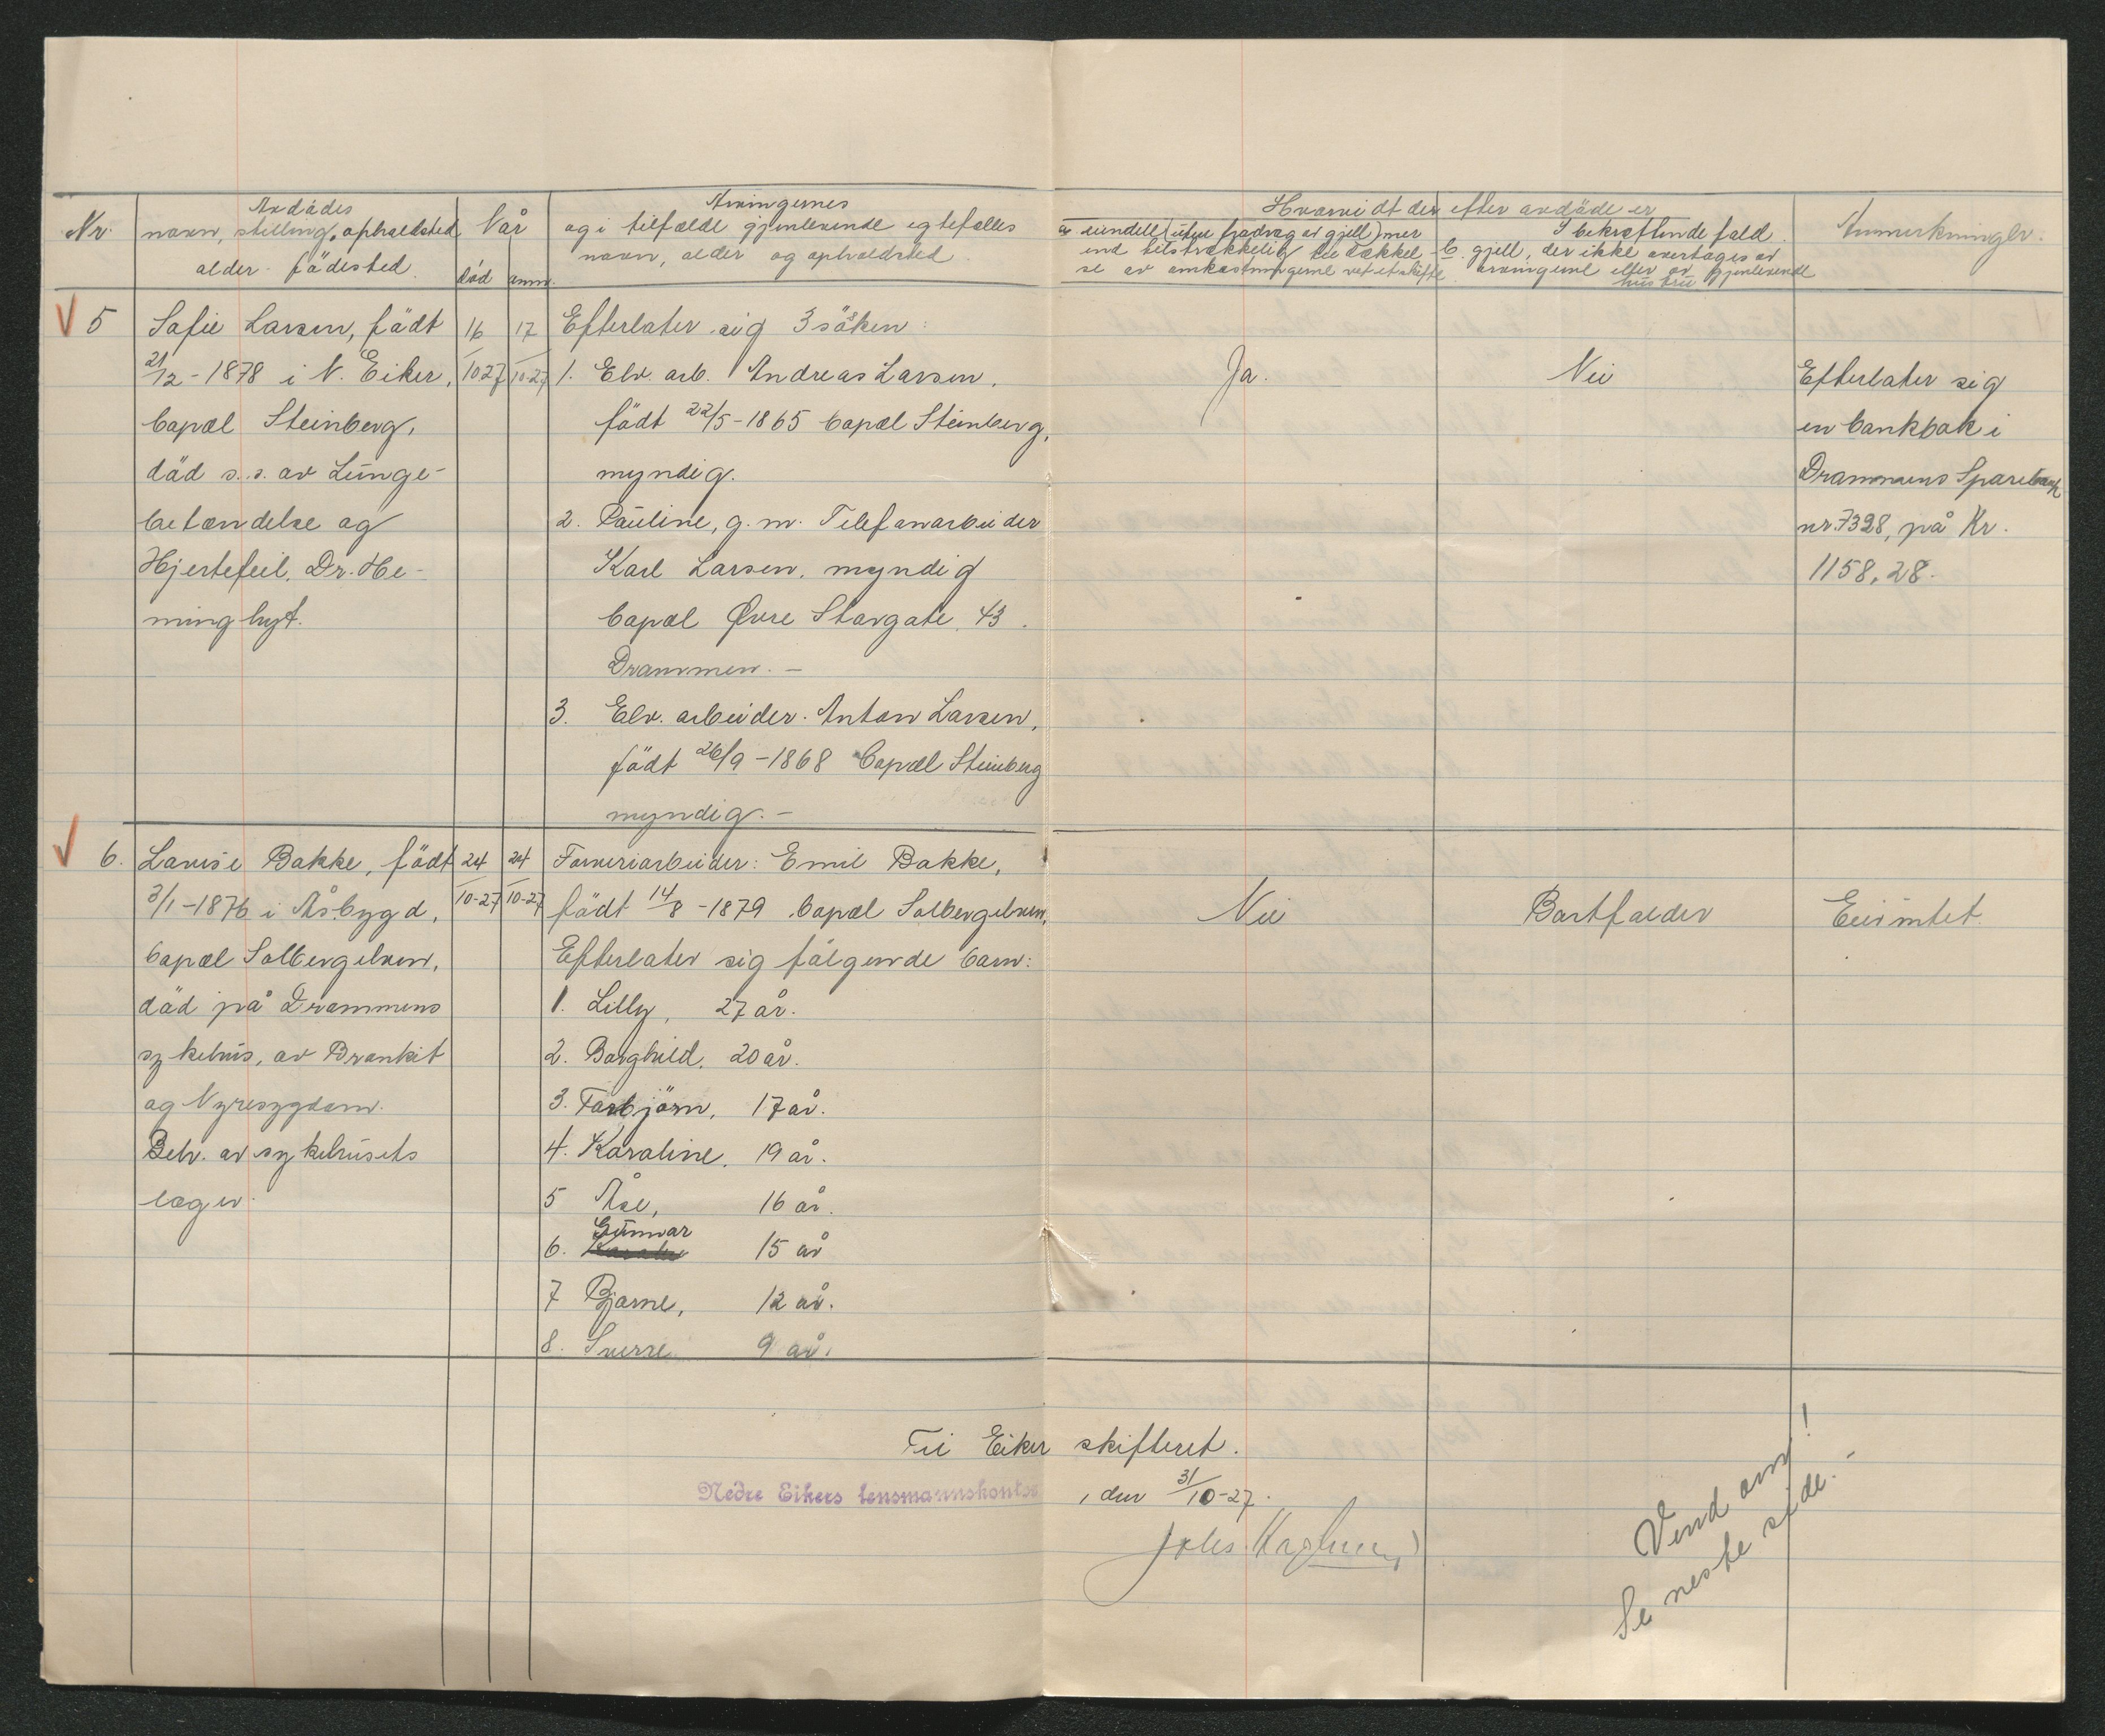 Avdödes
Nr. navn, stilling, opholdsted
alder - födested.
Når
död anm.
Arvingernes
og i tilfælde gjenlevende egtefælles
navn, alder og opholdsted
Hvorvidt der efter avdöde er
a eiendele (uten fradrag av gjell) mer
end tilstrækkelig til dækkel-
se av omkostningene ved et skifte
I bekræftende fald
b. gjell, der ikke overtages av
arvingene eller av gjenlevende
hustru
Anmerkninger.
5 Sofie Larsen, född
21/12 - 1878 i N. Eiker,
bopæl Steinberg,
död s.s. av Lunge-
betændelse og
Hjertefeil. Dr. He-
ming hyt.
16/10 27
17/10-27
Efterlater sig 3 söken:
1. Elv. arb. Andreas Larsen,
födt 22/5-1865 bopæl Steinberg,
myndig.
2. Pauline, g.m. Telefonarbeider
Karl Larsen, myndig
bopæl Øvre Storgate 43.
Drammen. -
3. Elv. arbeider. Anton Larsen,
födt 26/9 -1868 bopæl Steinberg
myndig. -
Ja.
Nei
Efterlater sig
en bankbok i
Drammens Sparebank
nr. 7328, på Kr.
1158,28.
6. Lovise Bakke, födt
3/1-1876 i Åsbygd,
bopæl Solbergelven,
död på Drammens
sykehus, av Bronkit
og Nyresygdom.
Beh. av sykehusets
læger.
24/10-27
24/10-27
Farveriarbeider: Emil Bakke,
födt 14/8 -1879 bopæl Solbergelven,
Efterlater sig fölgende barn:
1. Lilly, 27 år.
2. Borghild, 20 år.
3. Torbjörn, 17 år.
4. Karoline, 19 år.
5 Åse, 16 år.
6. Gunvar 15 år
7 Bjarne, 12 år.
8. Sverre 9 år.
Nei
Bortfalder
Eier intet.
Til Eiker skifteret.
Nedre Eikers lensmannskontor, den 31/10-27.
Vend om!
Se neste side. -